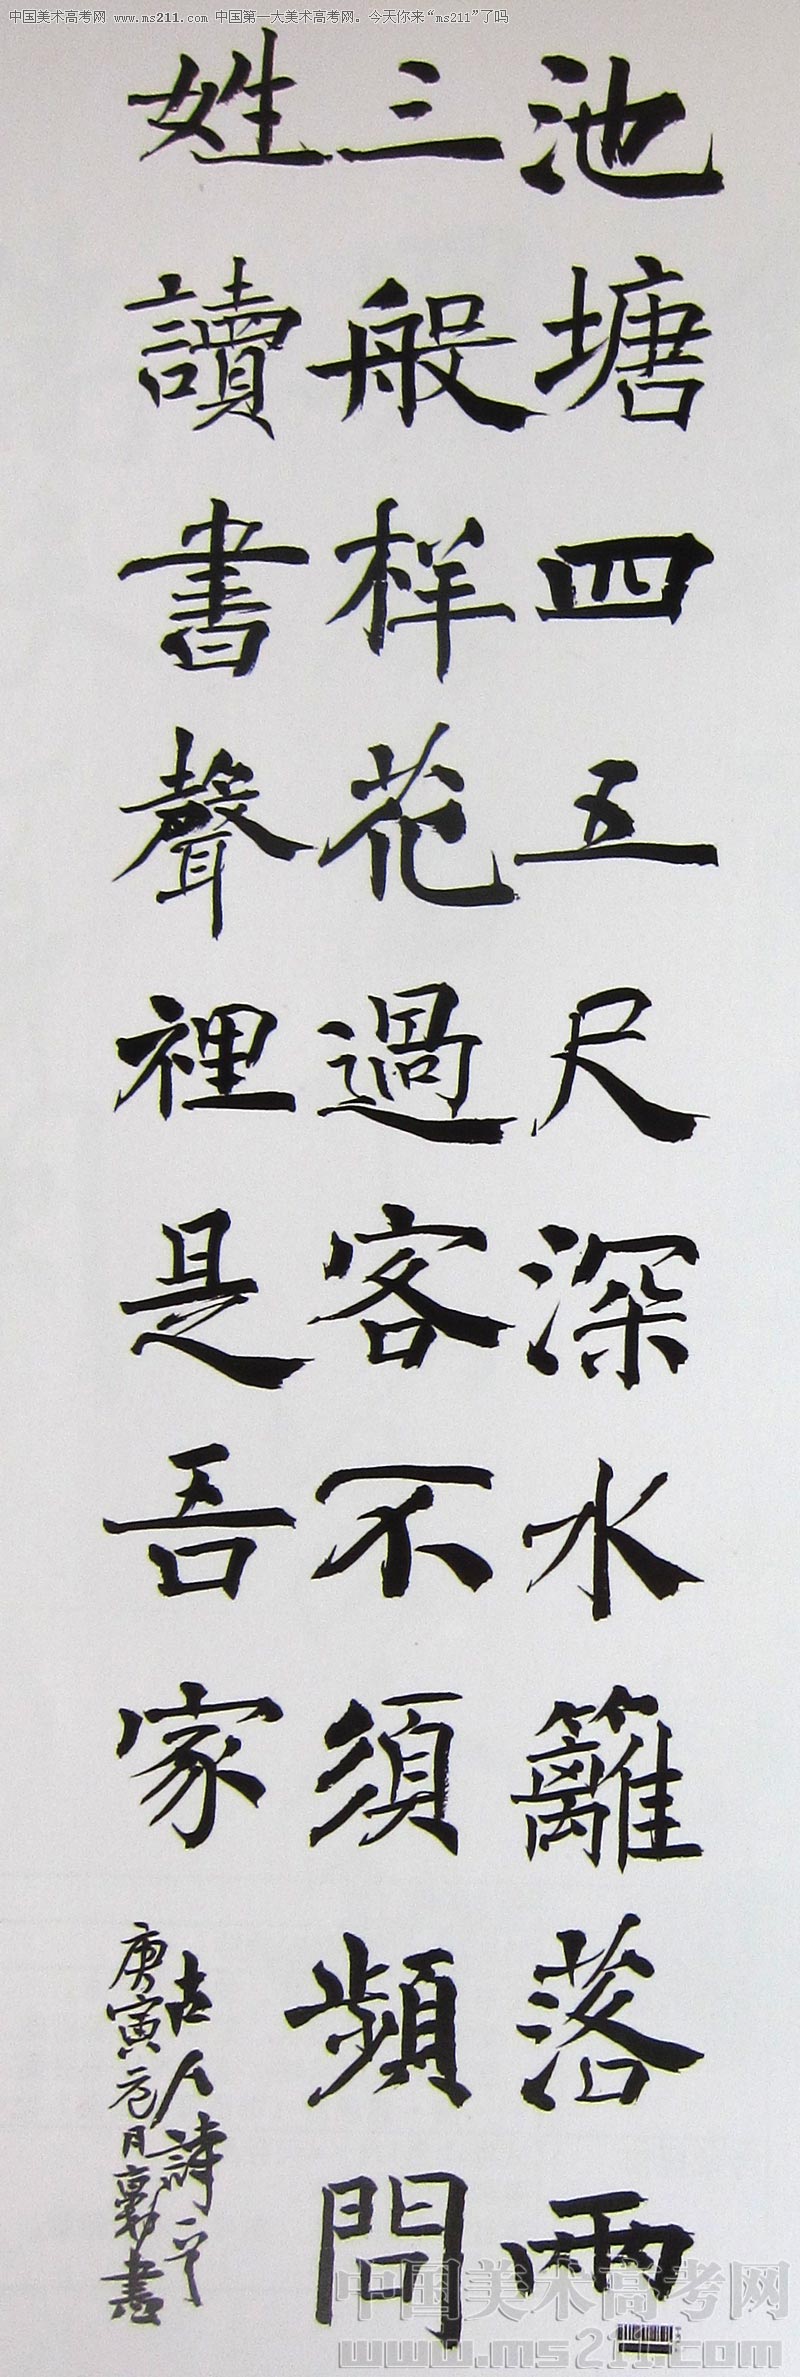 中国美术高考网 www.ms211.com 中国第一大美术高考网。今天你来“ms211”了吗
池塘四五尺深水籬落兩
三般样花過客不須頻問
姓讀書聲裡是吾家
古人詩一首
庚寅元月書
中国美术高考网
www.ms211.com